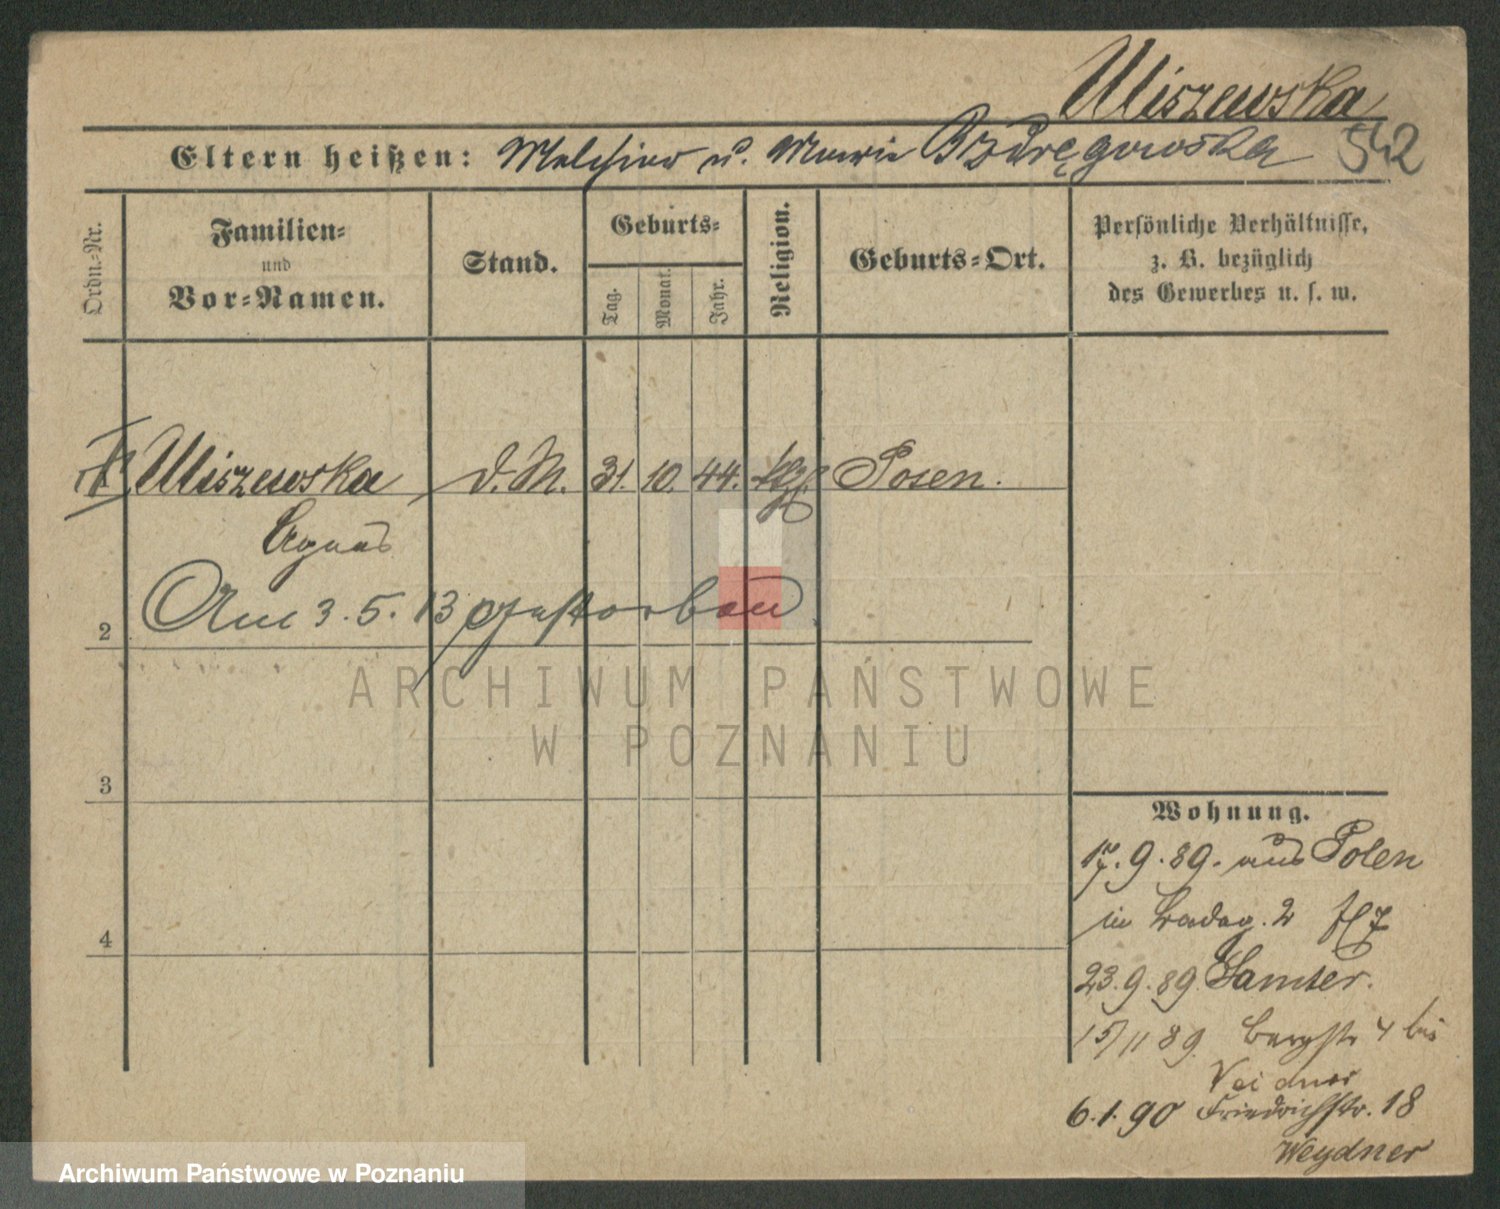 Uliszewska
Eltern heißen: Melchior u. Marie Bzdręgowska
542
Ordn.-Nr.
Familien-
und
Vor-Namen.
Stand.
Geburts-
Tag.
Monat.
Jahr.
Religion.
Geburts-Ort.
Persönliche Verhältnisse,
z. B. bezüglich
des Gewerbes u. s. w.
Uliszewska d. M. 31. 10. 44. Posen.
Agnes
Am 3. 5. 13 gestorben
2
3
4
Wohnung.
17. 9. 89. aus Polen
in 2
23. 9. 89 Samter.
15/11 89 Bergstr 4 bei
Veidner
6. 1. 90 Friedrichstr. 18
Weydner
ARCHIWUM PAŃSTWOWE
W POZNANIU
Archiwum Państwowe w Poznaniu